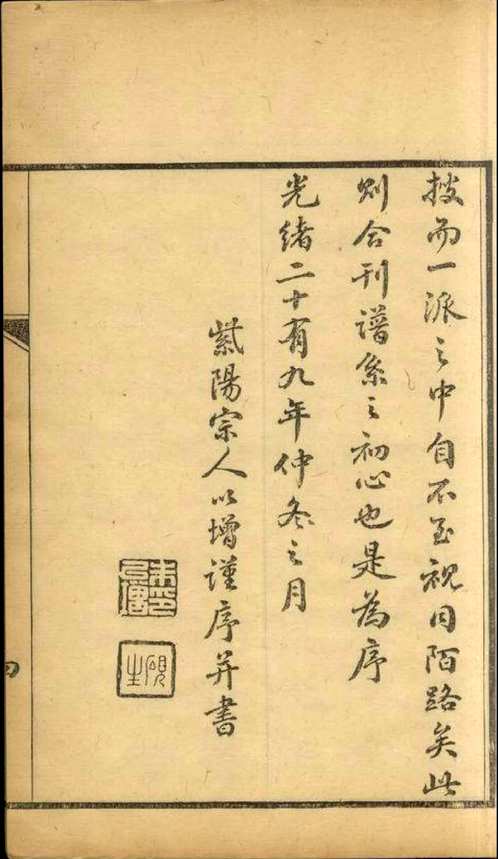 而一派之中自不至視同陌路矣此
則合刊譜系之初心也是為序
光緒二十有九年仲冬之月
紫陽宗人以增謹序并書
朱印以增
硯生